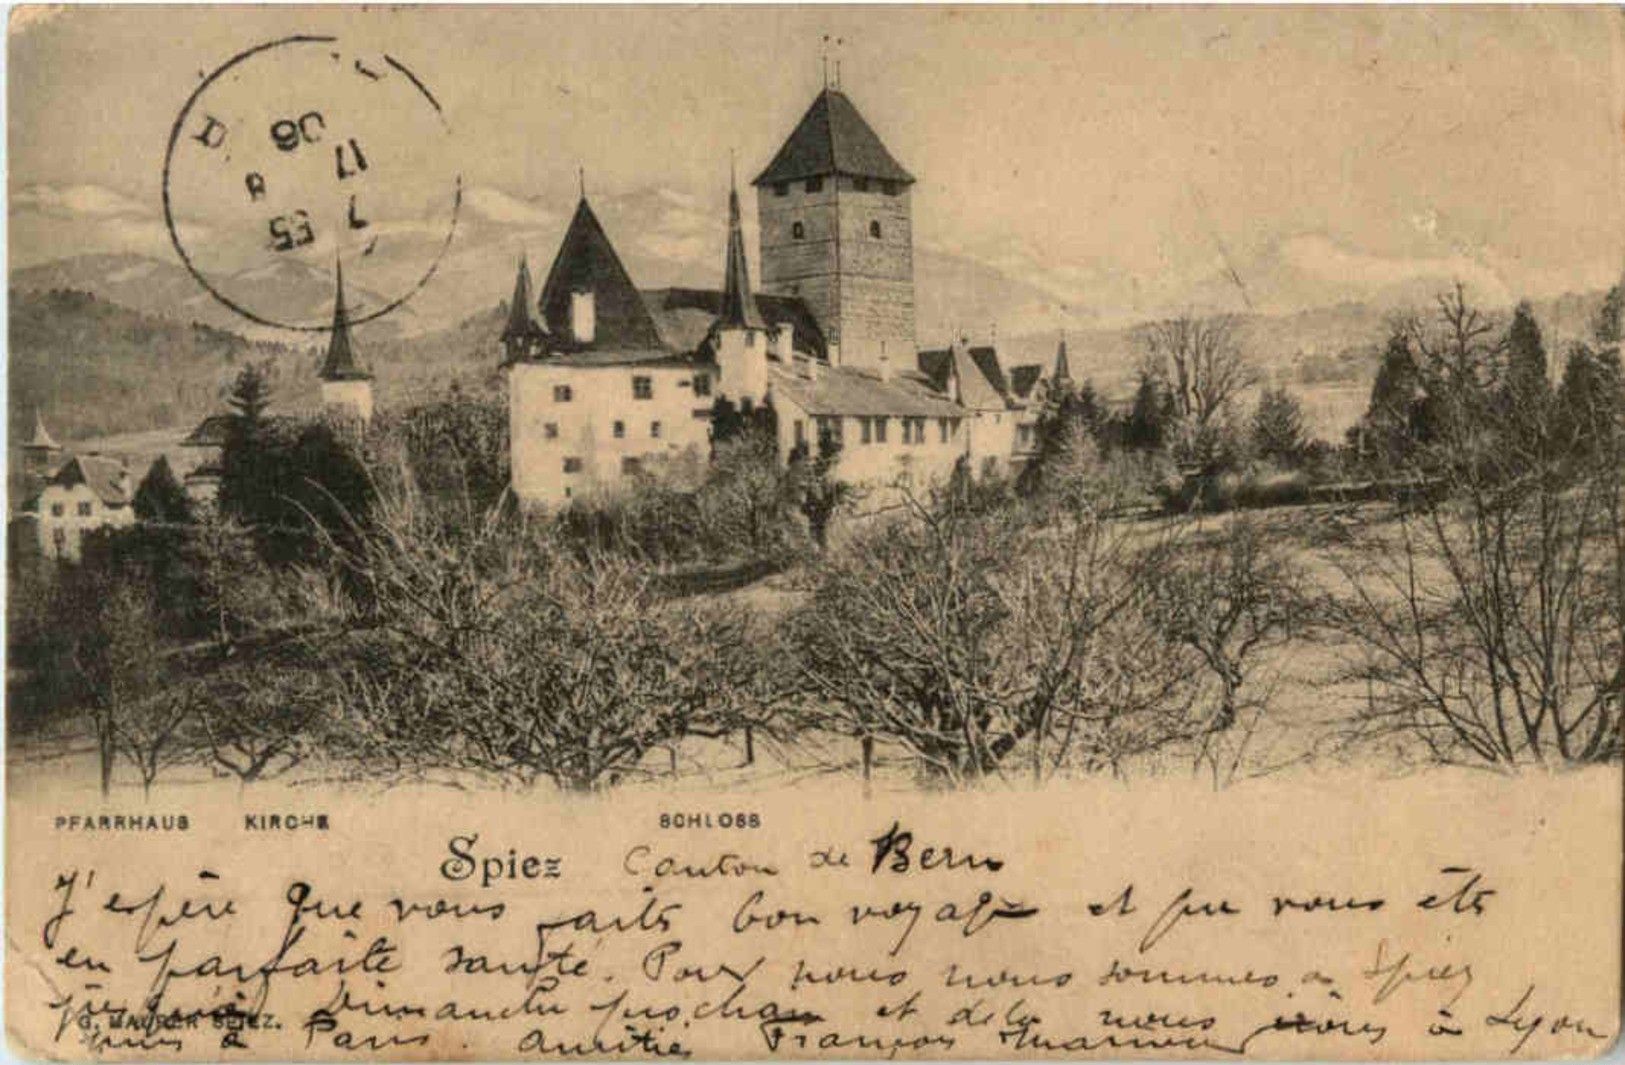 06
17
8
7 55
PFARRHAUS KIRCHE SCHLOSS
Spiez Canton de Bern
J'espère que vous faites bon voyage et que vous êtes
en parfaite santé. Pour nous nous sommes à Spiez
jusqu'à Dimanche prochain et de là nous irons à Lyon
G. MAURER SPIEZ.
puis à Paris. Amitiés François